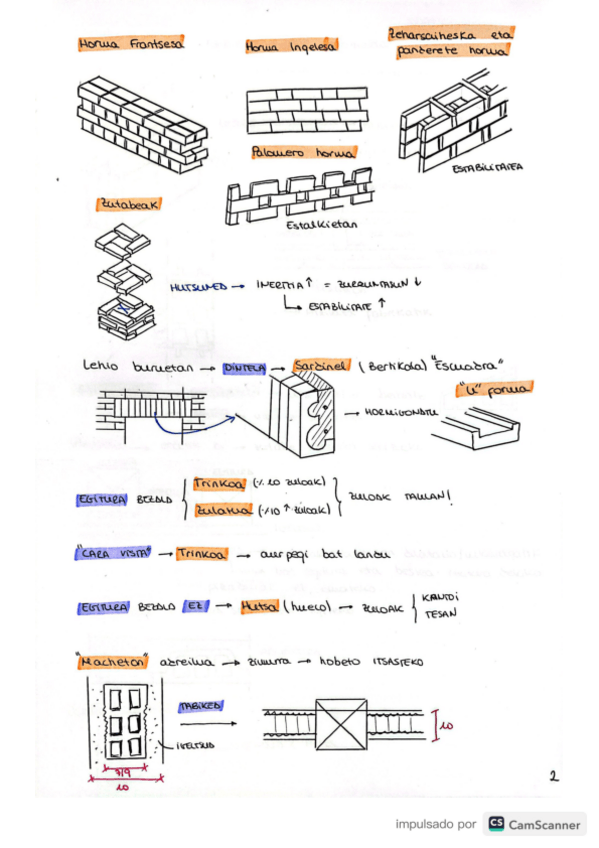 Horma Frantsesa
Horma Ingelesa
Zeharsaiheska eta
panterete horma
Palomero horma
ESTABILITATEA
Estalkietan
Zutabeak
HUTSUNEA → INERTZIA ↑ = ZURRUNTASUN ↓
↳ ESTABILITATE ↑
Leiho buruetan → DINTELA → Sardinel (Bertikala) "Escuadra"
"U" forma
→ HORMIGONATU
EGITURA BEZALA
Trinkoa (% 10 zuloak)
Zulatua (% 10 ↑ zuloak)
ZULOAK TABLAN!
"CARA VISTA" → Trinkoa → aurpegi bat landu
EGITURA BEZALA EZ → Hutsa (hueco) → ZULOAK
KANTOI
TESAN
"Macheton" adreilua → zimurra → hobeto ITSASTEKO
TABIKEA
IGELTSUA
10
7/9
10
2
impulsado por CS CamScanner